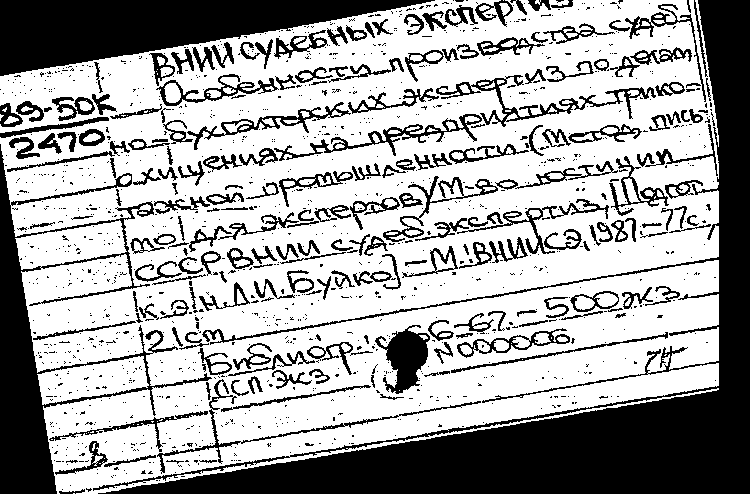 ВНИИ СУДЕБНЫХ ЭКСПЕРТИЗ
Особенности производства судеб-
89-50К
2470
но-бухгалтерских экспертиз по делам
о хищениях на предприятиях трико-
тажной промышленности: (Метод. пись-
мо для экспертов)/М-во юстиции
СССР, ВНИИ судеб. экспертиз; [Подгот.
к.э.н. Л.И. Буйко]. – М.: ВНИИСЭ, 1987. – 77 с.;
21 cm.
Библиогр.: с. 66-67. – 500 экз.
ДСП. Экз. N 000006.
8